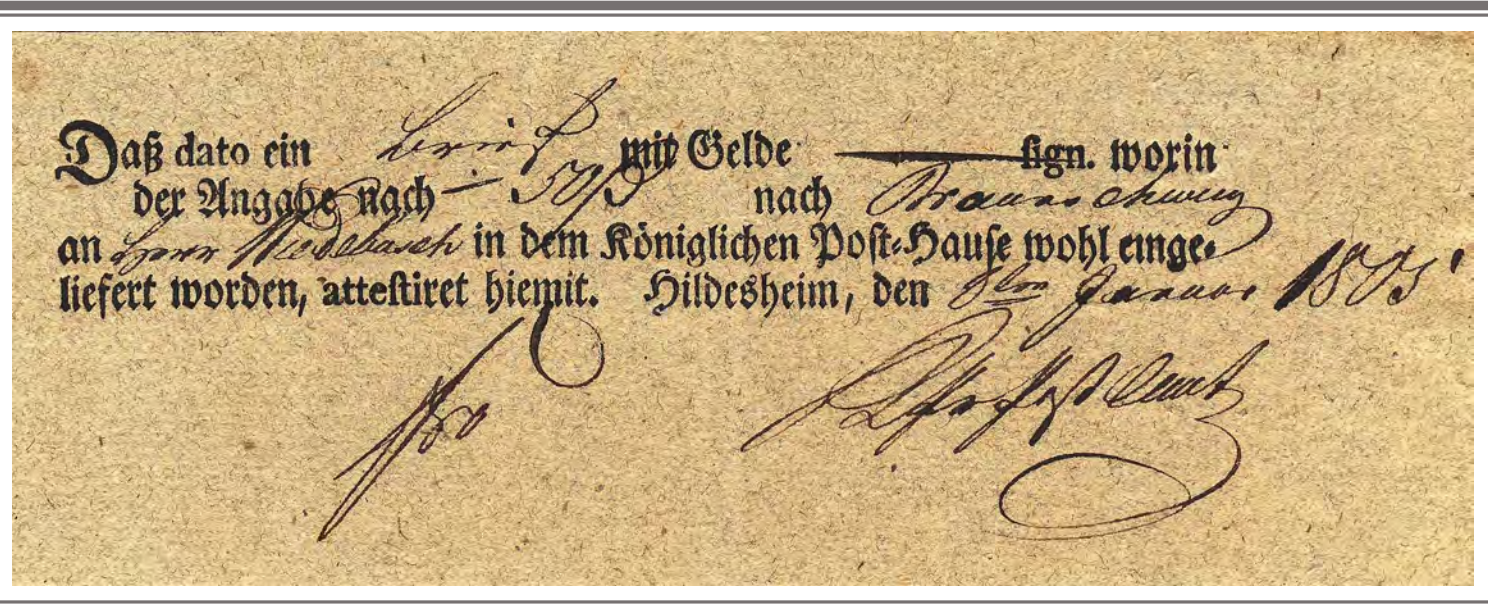 Daß dato ein Brief mit Gelde sign. worin
der Angabe nach — 50 nach Braunschweig
an Herr in dem Königlichen Post-Hause wohl einge-
liefert worden, attestiret hiemit. Hildesheim, den 8ten Januar 1805
Post Amt